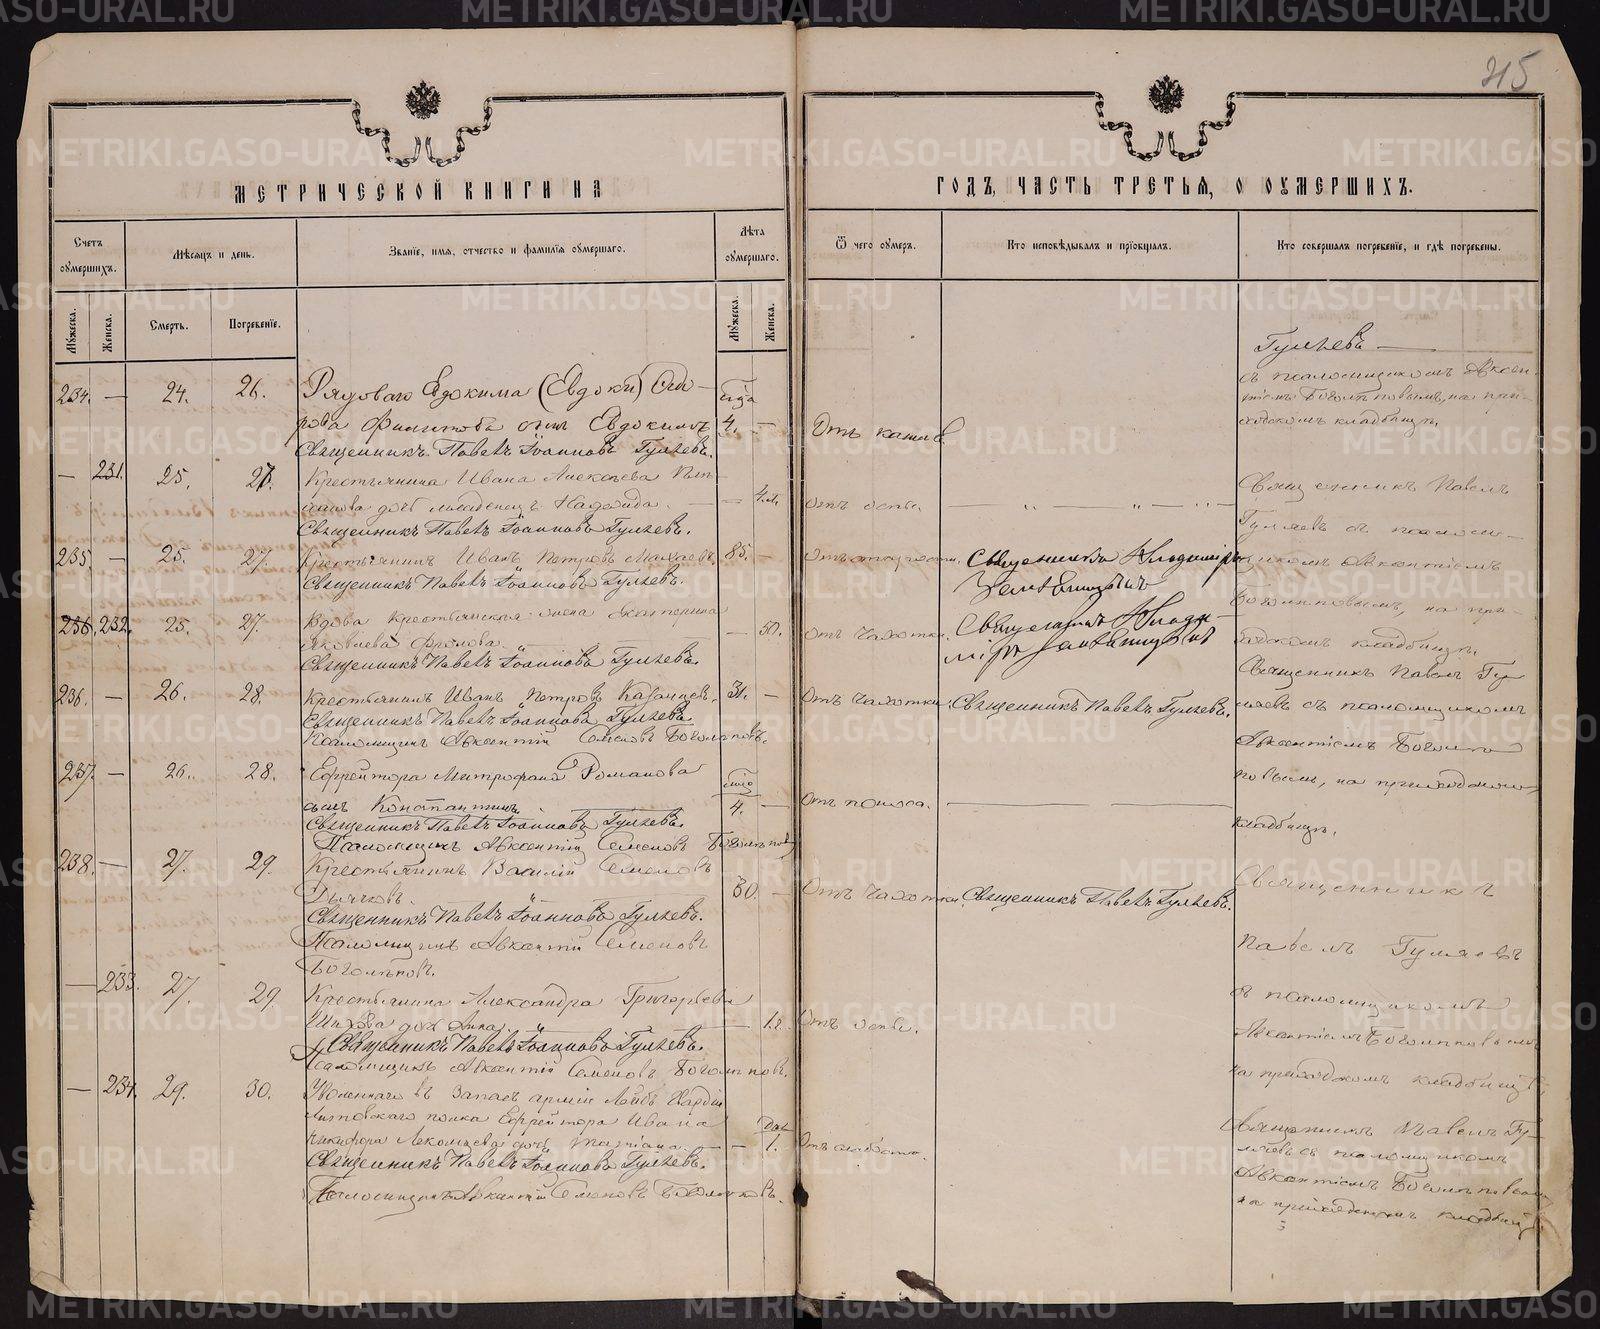 METRIKI.GASO-URAL.RU
215
МЕТРИЧЕСКОЙ КНИГИ НА
ГОДЪ, ЧАСТЬ ТРЕТЬЯ, О ОУМЕРШИХЪ.
Счетъ оумершихъ.
Мѣсяцъ и день.
Званіе, имя, отчество и фамилія оумершаго.
Лѣта оумершаго.
Ѿ чего оумеръ.
Кто исповѣдывалъ и пріобщалъ.
Кто совершалъ погребеніе, и гдѣ погребены.
Мужеска.
Женска.
Смерть.
Погребеніе.
Мужеска.
Женска.
Гуляевъ
съ псаломщикомъ
на при-
ходскомъ кладбищѣ.
234. — 24. 26. Рядоваго Евдокима (Евдоки)
Филитова сынъ Евдокимъ 4. —
Священникъ Павелъ Іоанновъ Гуляевъ.
— 231. 25. 27. Крестьянина Ивана Алексѣева
дочь младенецъ Надежда. — 4.м. отъ оспы.
Священникъ Павелъ
Священникъ Павелъ Іоанновъ Гуляевъ.
Гуляевъ съ псалом-
235. — 25. 27. Крестьянинъ Иванъ Петровъ 85. — Священникъ Владиміръ
щикомъ Авксентіемъ
Священникъ Павелъ Іоанновъ Гуляевъ.
Боголѣповымъ, на при-
236. 232. 25. 27. Вдова крестьянская жена Екатерина
Яковлева Фролова. — 50. отъ чахотки. Священникъ Влади-
ходскомъ кладбищѣ.
Священникъ Павелъ Іоанновъ Гуляевъ.
Священникъ Павелъ Гу
236. — 26. 28. Крестьянинъ Иванъ Петровъ Казанцевъ. 31. — Отъ чахотки. Священникъ Павелъ Гуляевъ.
ляевъ съ псаломщикомъ
Священникъ Павелъ Іоанновъ Гуляевъ
Псаломщикъ Авксентій Семеновъ Боголѣповъ.
Авксентіемъ Боголѣ
237. — 26. 28. Ефрейтора Митрофана Романова
повымъ, на приходскомъ
сынъ Константинъ. 4. — Отъ поноса.
кладбищѣ.
Священникъ Павелъ Іоанновъ Гуляевъ.
Псаломщикъ Авксентій Семеновъ Боголѣповъ
238. — 27. 29. Крестьянинъ Василій Семеновъ
Дьячковъ. 30. — Отъ чахотки. Священникъ Павелъ Гуляевъ.
Священникъ
Священникъ Павелъ Іоанновъ Гуляевъ.
Псаломщикъ Авксентій Семеновъ
Боголѣповъ.
Павелъ Гуляевъ
— 233. 27. 29. Крестьянина Александра Григорьева
съ псаломщикомъ
дочь Анна. — 1.г. Отъ оспы.
Авксентіемъ Боголѣповымъ
Священникъ Павелъ Іоанновъ Гуляевъ.
Псаломщикъ Авксентій Семеновъ Боголѣповъ.
на приходскомъ кладбищѣ
— 234. 29. 30. Уволеннаго въ запасъ арміи Лейбъ Гвардіи
Литовскаго полка Ефрейтора Ивана
Священникъ Павелъ Гу-
Никифорова дочь Татіана. — 1.
ляевъ съ псаломщикомъ
Священникъ Павелъ Іоанновъ Гуляевъ.
Авксентіемъ Боголѣповымъ
Псаломщикъ Авксентій Семеновъ Боголѣповъ.
на приходскомъ кладбищѣ